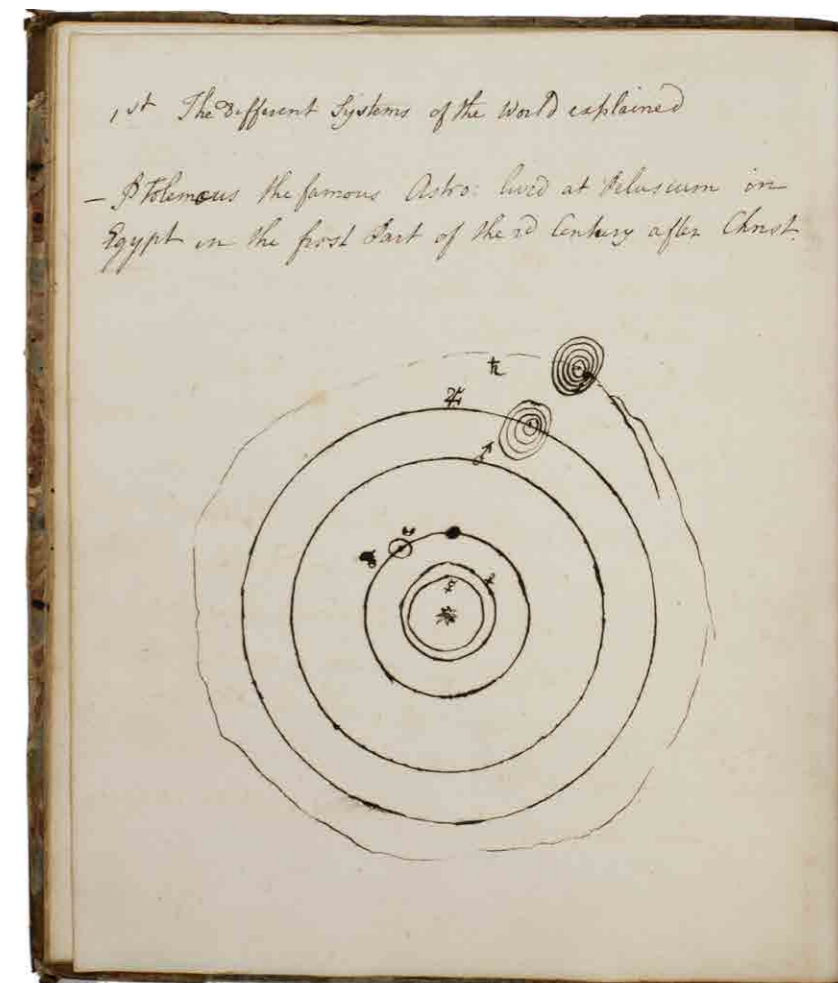 1st The different Systems of the World explained
— Ptolemous the famous Astro: lived at Pelusium in
Egypt in the first Part of the 2d Century after Christ.
♄
♃
♂
☿